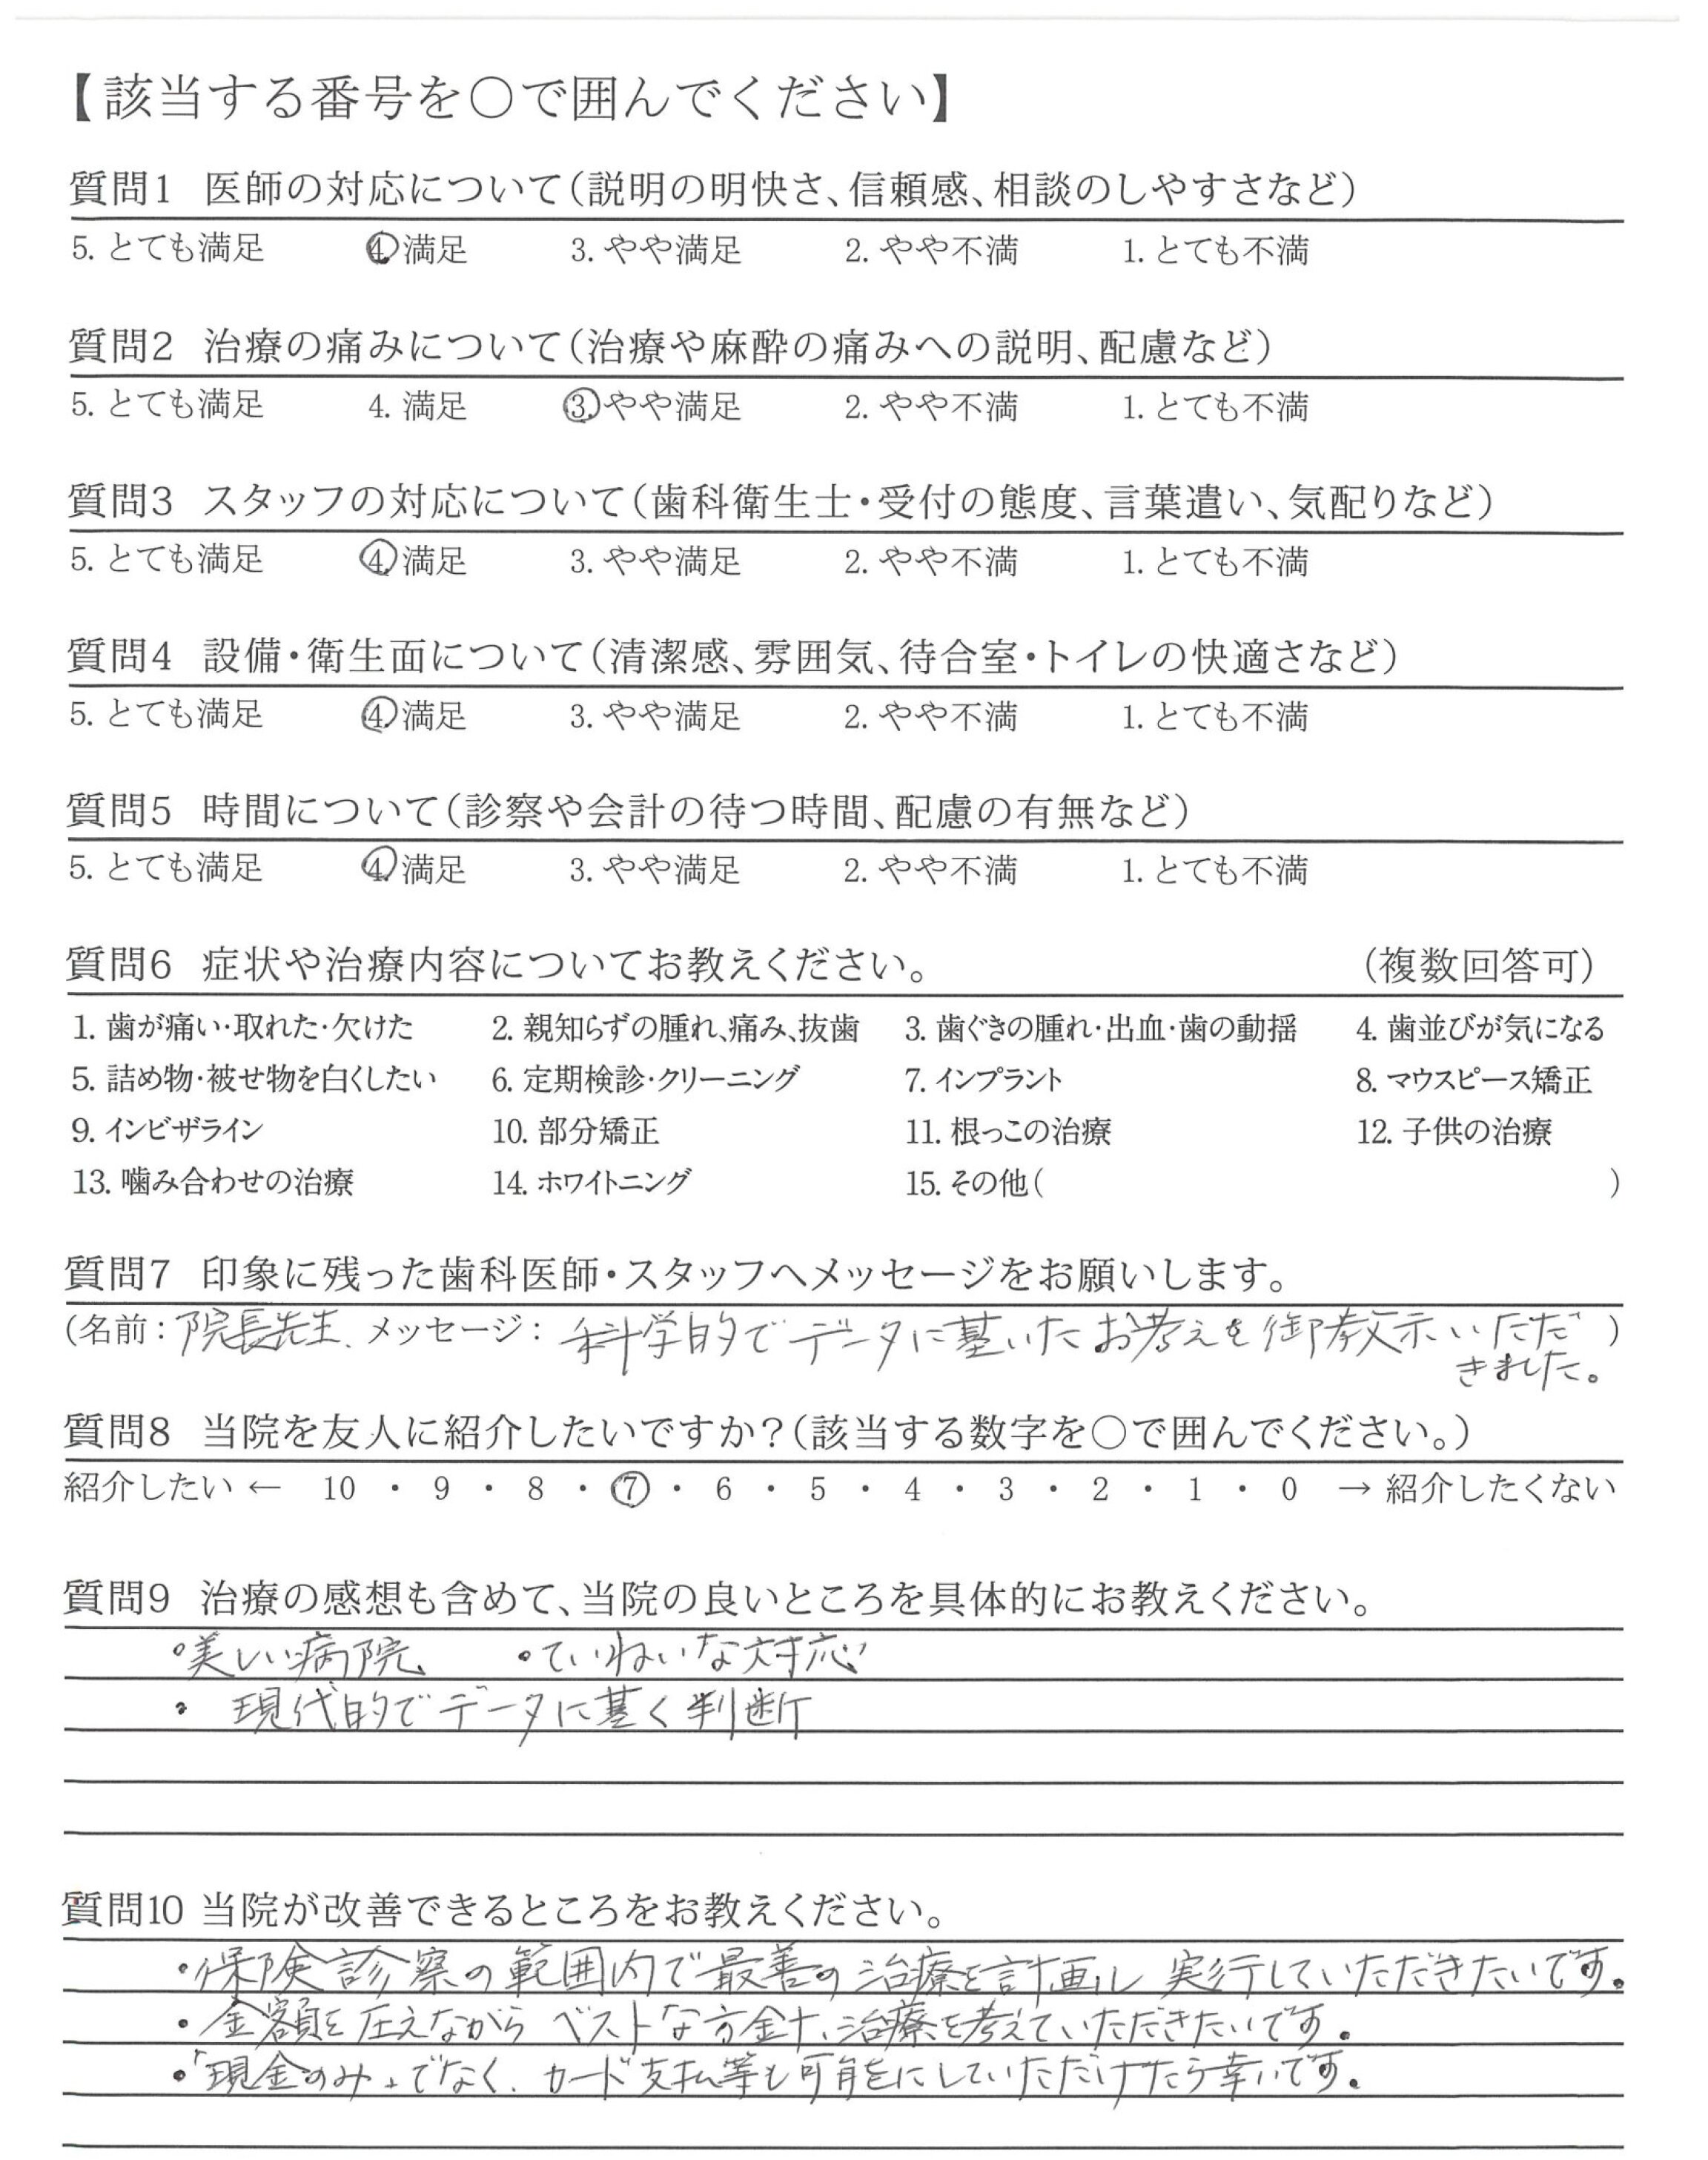 【該当する番号を○で囲んでください】
質問1 医師の対応について(説明の明快さ、信頼感、相談のしやすさなど)
5. とても満足 4. 満足 3. やや満足 2. やや不満 1. とても不満
質問2 治療の痛みについて(治療や麻酔の痛みへの説明、配慮など)
5. とても満足 4. 満足 3. やや満足 2. やや不満 1. とても不満
質問3 スタッフの対応について(歯科衛生士・受付の態度、言葉遣い、気配りなど)
5. とても満足 4. 満足 3. やや満足 2. やや不満 1. とても不満
質問4 設備・衛生面について(清潔感、雰囲気、待合室・トイレの快適さなど)
5. とても満足 4. 満足 3. やや満足 2. やや不満 1. とても不満
質問5 時間について(診察や会計の待つ時間、配慮の有無など)
5. とても満足 4. 満足 3. やや満足 2. やや不満 1. とても不満
質問6 症状や治療内容についてお教えください。 (複数回答可)
1. 歯が痛い・取れた・欠けた 2. 親知らずの腫れ、痛み、抜歯 3. 歯ぐきの腫れ・出血・歯の動揺 4. 歯並びが気になる
5. 詰め物・被せ物を白くしたい 6. 定期検診・クリーニング 7. インプラント 8. マウスピース矯正
9. インビザライン 10. 部分矯正 11. 根っこの治療 12. 子供の治療
13. 噛み合わせの治療 14. ホワイトニング 15. その他( )
質問7 印象に残った歯科医師・スタッフへメッセージをお願いします。
(名前：院長先生. メッセージ：科学的でデータに基いたお考えを御教示いただ)
きました。
質問8 当院を友人に紹介したいですか?(該当する数字を○で囲んでください。)
紹介したい ← 10 ・ 9 ・ 8 ・ 7 ・ 6 ・ 5 ・ 4 ・ 3 ・ 2 ・ 1 ・ 0 → 紹介したくない
質問9 治療の感想も含めて、当院の良いところを具体的にお教えください。
・美しい病院、 ・ていねいな対応
・ 現代的でデータに基く判断
質問10 当院が改善できるところをお教えください。
・保険診察の範囲内で最善の治療を計画し 実行していただきたいです。
・金額を圧えながら ベストな方針、治療を考えていただきたいです。
・「現金のみ」でなく、カード支払等も可能にしていただけたら幸いです。